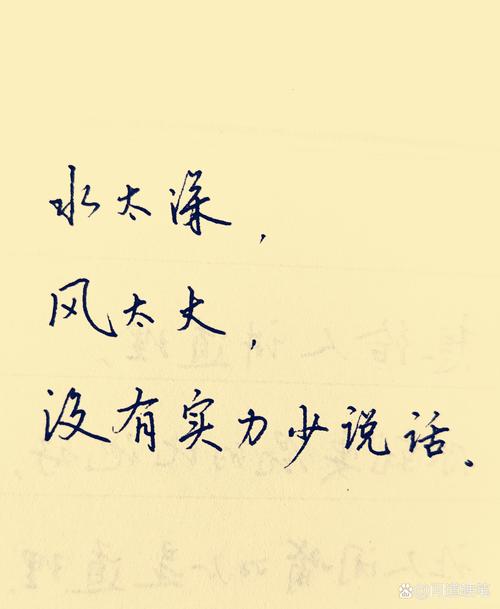 水太深，
风太大，
没有实力少说话.